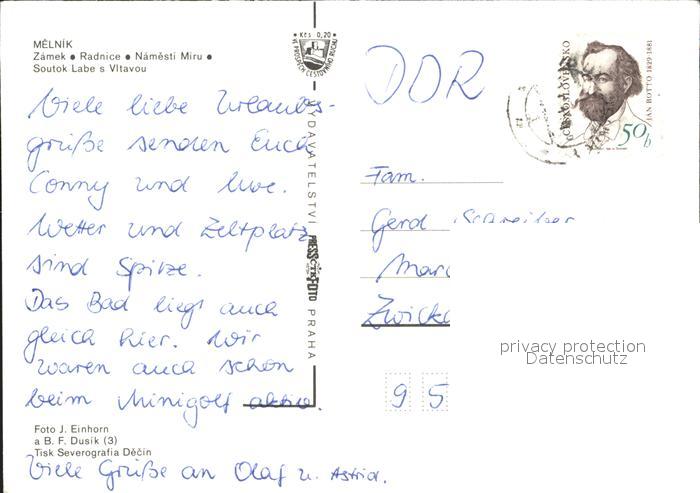 MĚLNÍK
Zámek • Radnice • Náměstí Míru •
Soutok Labe s Vltavou
• Kčs 0,20 •
VE PROSPĚCH CESTOVNÍHO RUCHU
DDR
ČESKOSLOVENSKO
JAN BOTTO 1829-1881
50h
Viele liebe Urlaubs-
grüße senden Euch
Conny und Uwe.
Wetter und Zeltplatz
sind Spitze.
Das Bad liegt auch
gleich hier. Wir
waren auch schon
beim Minigolf aktiv.
VYDAVATELSTVÍ PRESSFOTO PRAHA
ČTK
Fam.
Gerd Schreiber
Marc
Zwick
95
privacy protection
Datenschutz
Foto J. Einhorn
a B. F. Dusík (3)
Tisk Severografia Děčín
Viele Grüße an Olaf u. Astrid.